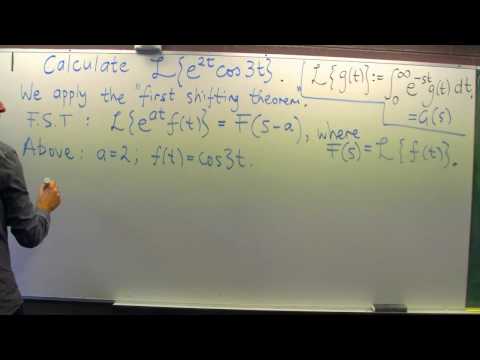 Calculate ℒ{e^{2t} cos3t}.
ℒ{g(t)} := ∫_0^∞ e^{-st} g(t) dt.
= G(s)
We apply the "first shifting theorem."
F.S.T : ℒ{e^{at} f(t)} = F(s-a), where
F(s) = ℒ{f(t)}.
Above: a=2; f(t)=cos3t.